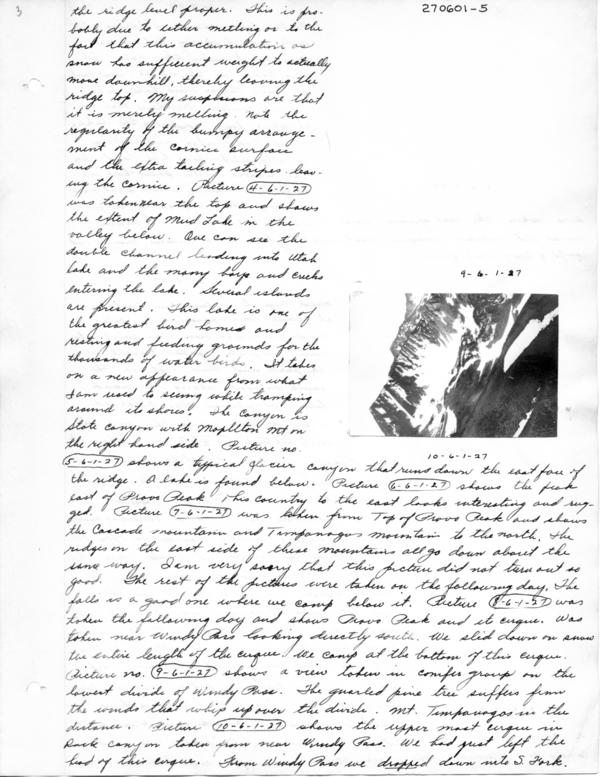 3
270601-5
the ridge level proper. This is pro-
bably due to either metling or to the
fact that this accumulation os
snow has sufficient weight to actually
move downhill, thereby leaving the
ridge top. My suspicions are that
it is merely melling. Note the
regularity of the bumpy arrange-
ment of the cornice surface
and the extra tailing stripes leav-
ing the cornice. Picture 4-6-1-27
was taken near the top and shows
the extent of Mud Lake in the
valley below. One can see the
double channel leading into Utah
Lake and the many bays and creeks
entering the lake. Several islands
are present. This lake is one of
the greatest bird homes and
resting and feeding grounds for the
thousands of water birds. It takes
on a new appearance from what
I am used to seeing while tramping
around its shores. The canyon is
Slate canyon with Maplton Mt on
the right hand side. Picture no.
9-6-1-27
10-6-1-27
5-6-1-27 shows a typical glacier canyon that runs down the east face of
the ridge. A lake is found below. Picture 6-6-1-27 shows the peak
east of Provo Peak. This country to the east looks interesting and rug-
ged. Picture 7-6-1-27 was taken from Top of Provo Peak and shows
the Cascade mountain and Timpanogus mountain to the north. The
ridges on the east side of these mountains all go down about the
same way. I am very sorry that this picture did not turn out so
good. The rest of the pictures were taken on the following day. The
falls is a good one where we camp below it. Picture 8-6-1-27 was
taken the following day and shows Provo Peak and it cirque. Was
taken near Windy Pass looking directly south. We slid down on snow
the entire length of the cirque. We camp at the bottom of this cirque.
Picture no. 9-6-1-27 shows a view taken in conifer group on the
lowest divide of Windy Pass. The gnarled pine tree suffers from
the winds that whip up over the divide. Mt. Timpanogas in the
distance. Picture 10-6-1-27 shows the upper most cirque in
Rock canyon taken from near Windy Pass. We had just left the
head of this cirque. From Windy Pass we dropped down into S. Fork.